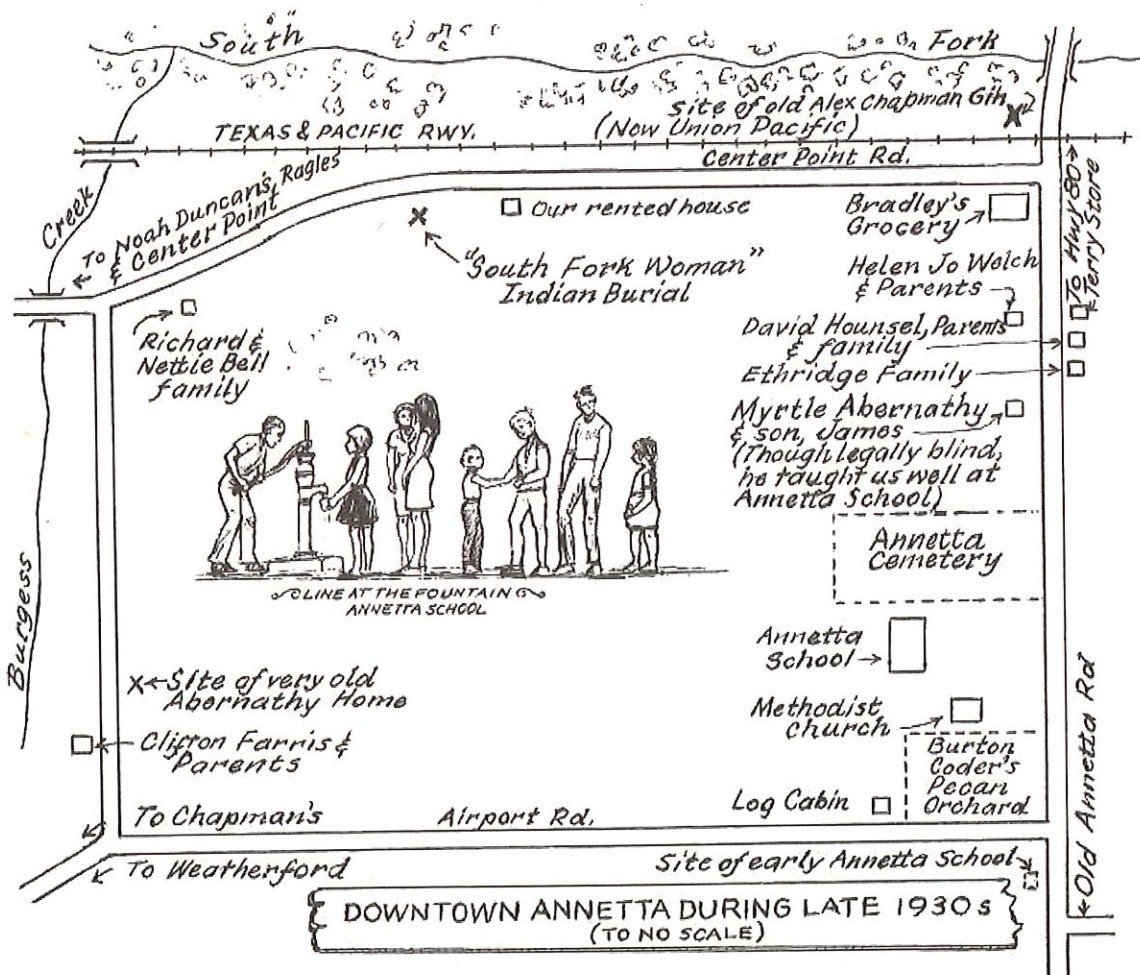 South Fork
Site of old Alex Chapman Gin
TEXAS & PACIFIC RWY. (Now Union Pacific)
Center Point Rd.
Creek
To Noah Duncan's, Ragles
& Center Point
Our rented house
Bradley's
Grocery
To Hwy 80
Terry Store
"South Fork Woman"
Indian Burial
Helen Jo Welch
& Parents
Richard &
Nettie Bell
family
David Hounsel, Parents
& family
Ethridge Family
Myrtle Abernathy
& son, James
(Though legally blind,
he taught us well at
Annetta School)
Annetta
Cemetery
LINE AT THE FOUNTAIN
ANNETTA SCHOOL
Burgess
Annetta
School
Site of very old
Abernathy Home
Methodist
Church
Clifton Farris &
Parents
Burton
Coder's
Pecan
Orchard
Log Cabin
Old Annetta Rd
To Chapman's
Airport Rd.
To Weatherford
Site of early Annetta School
DOWNTOWN ANNETTA DURING LATE 1930s
(TO NO SCALE)